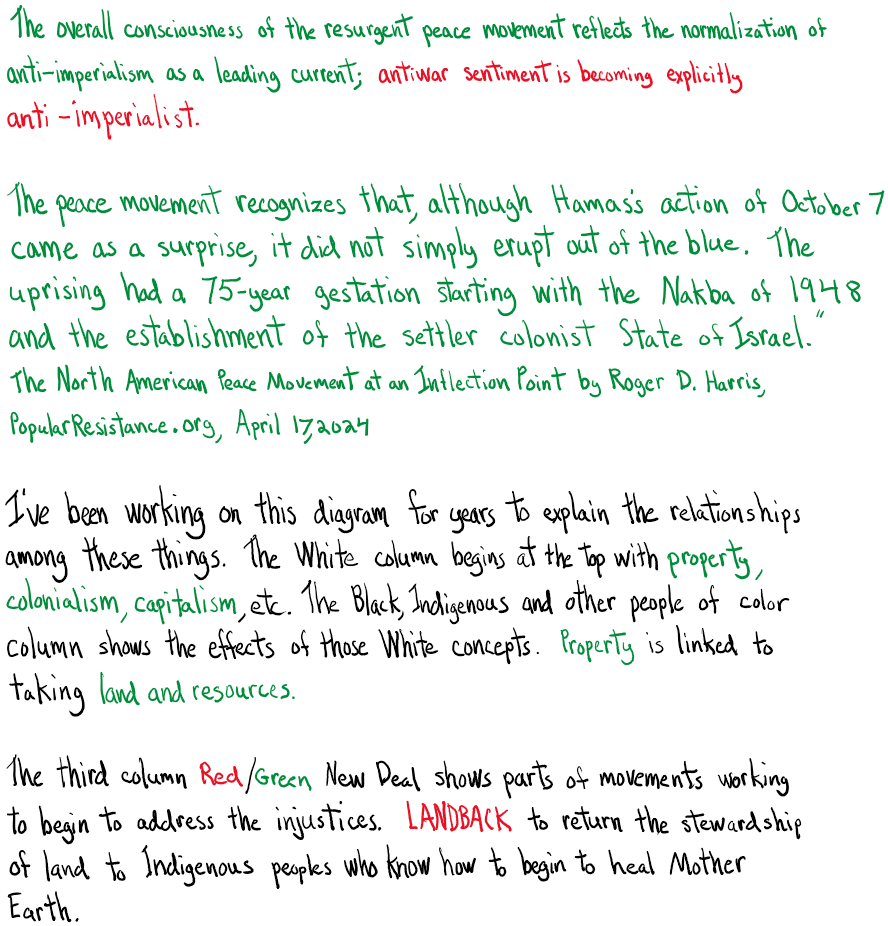 The overall consciousness of the resurgent peace movement reflects the normalization of
anti-imperialism as a leading current; antiwar sentiment is becoming explicitly
anti-imperialist.
The peace movement recognizes that, although Hamas's action of October 7
came as a surprise, it did not simply erupt out of the blue. The
uprising had a 75-year gestation starting with the Nakba of 1948
and the establishment of the settler colonist State of Israel."
The North American Peace Movement at an Inflection Point by Roger D. Harris,
PopularResistance.org, April 17, 2024
I've been working on this diagram for years to explain the relationships
among these things. The White column begins at the top with property,
colonialism, capitalism, etc. The Black, Indigenous and other people of color
column shows the effects of those White concepts. Property is linked to
taking land and resources.
The third column Red/Green New Deal shows parts of movements working
to begin to address the injustices. LANDBACK to return the stewardship
of land to Indigenous peoples who know how to begin to heal Mother
Earth.